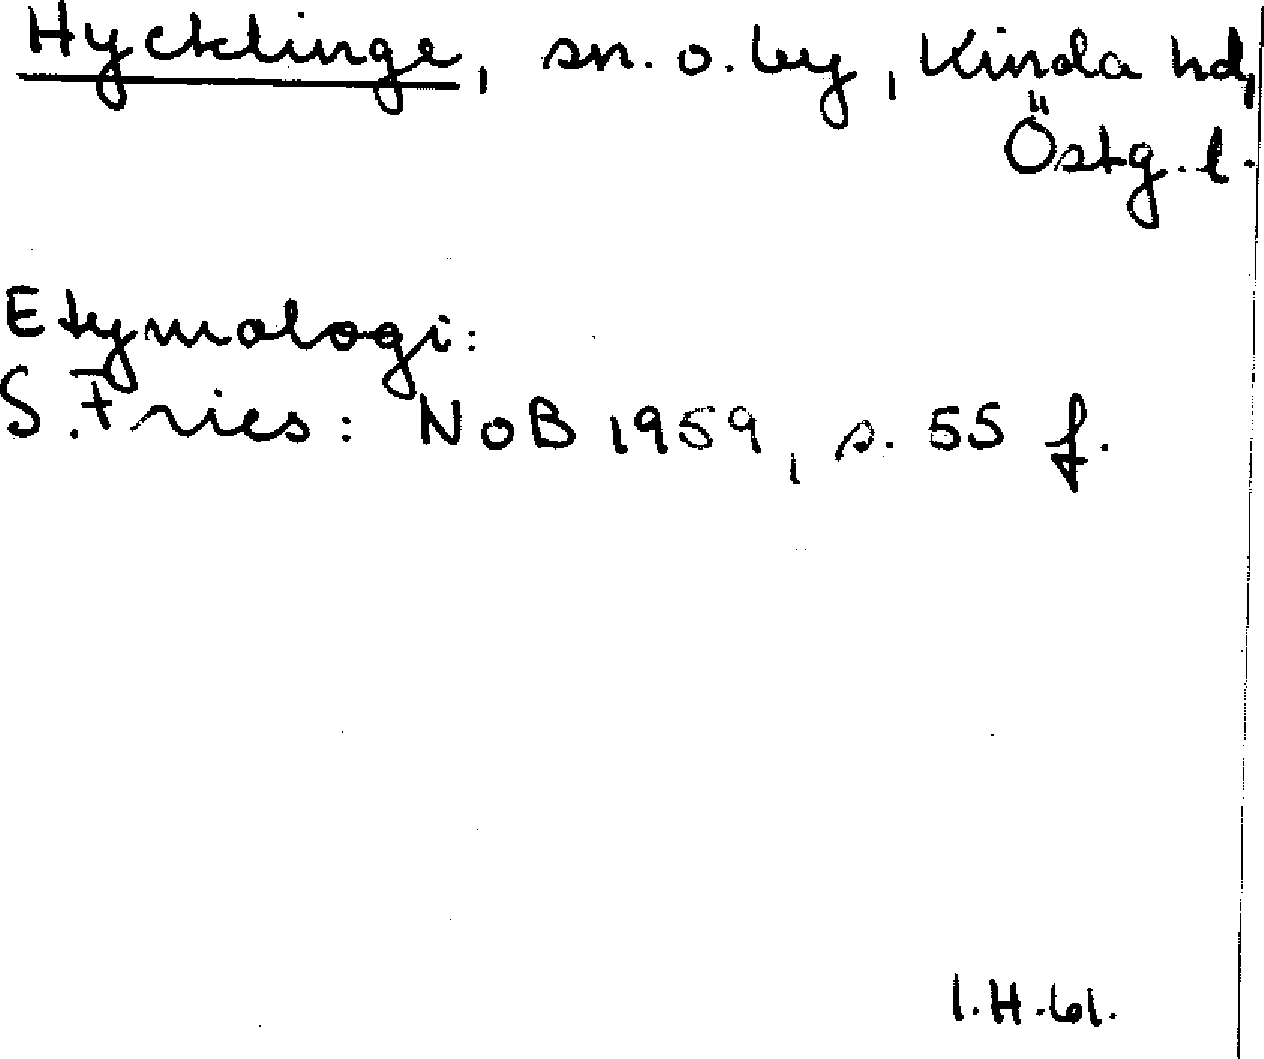 Hycklinge, sn. o. by, Kinda hd,
Östg. l.
Etymologi:
S. Fries: NoB 1959, s. 55 f.
I.H.61.